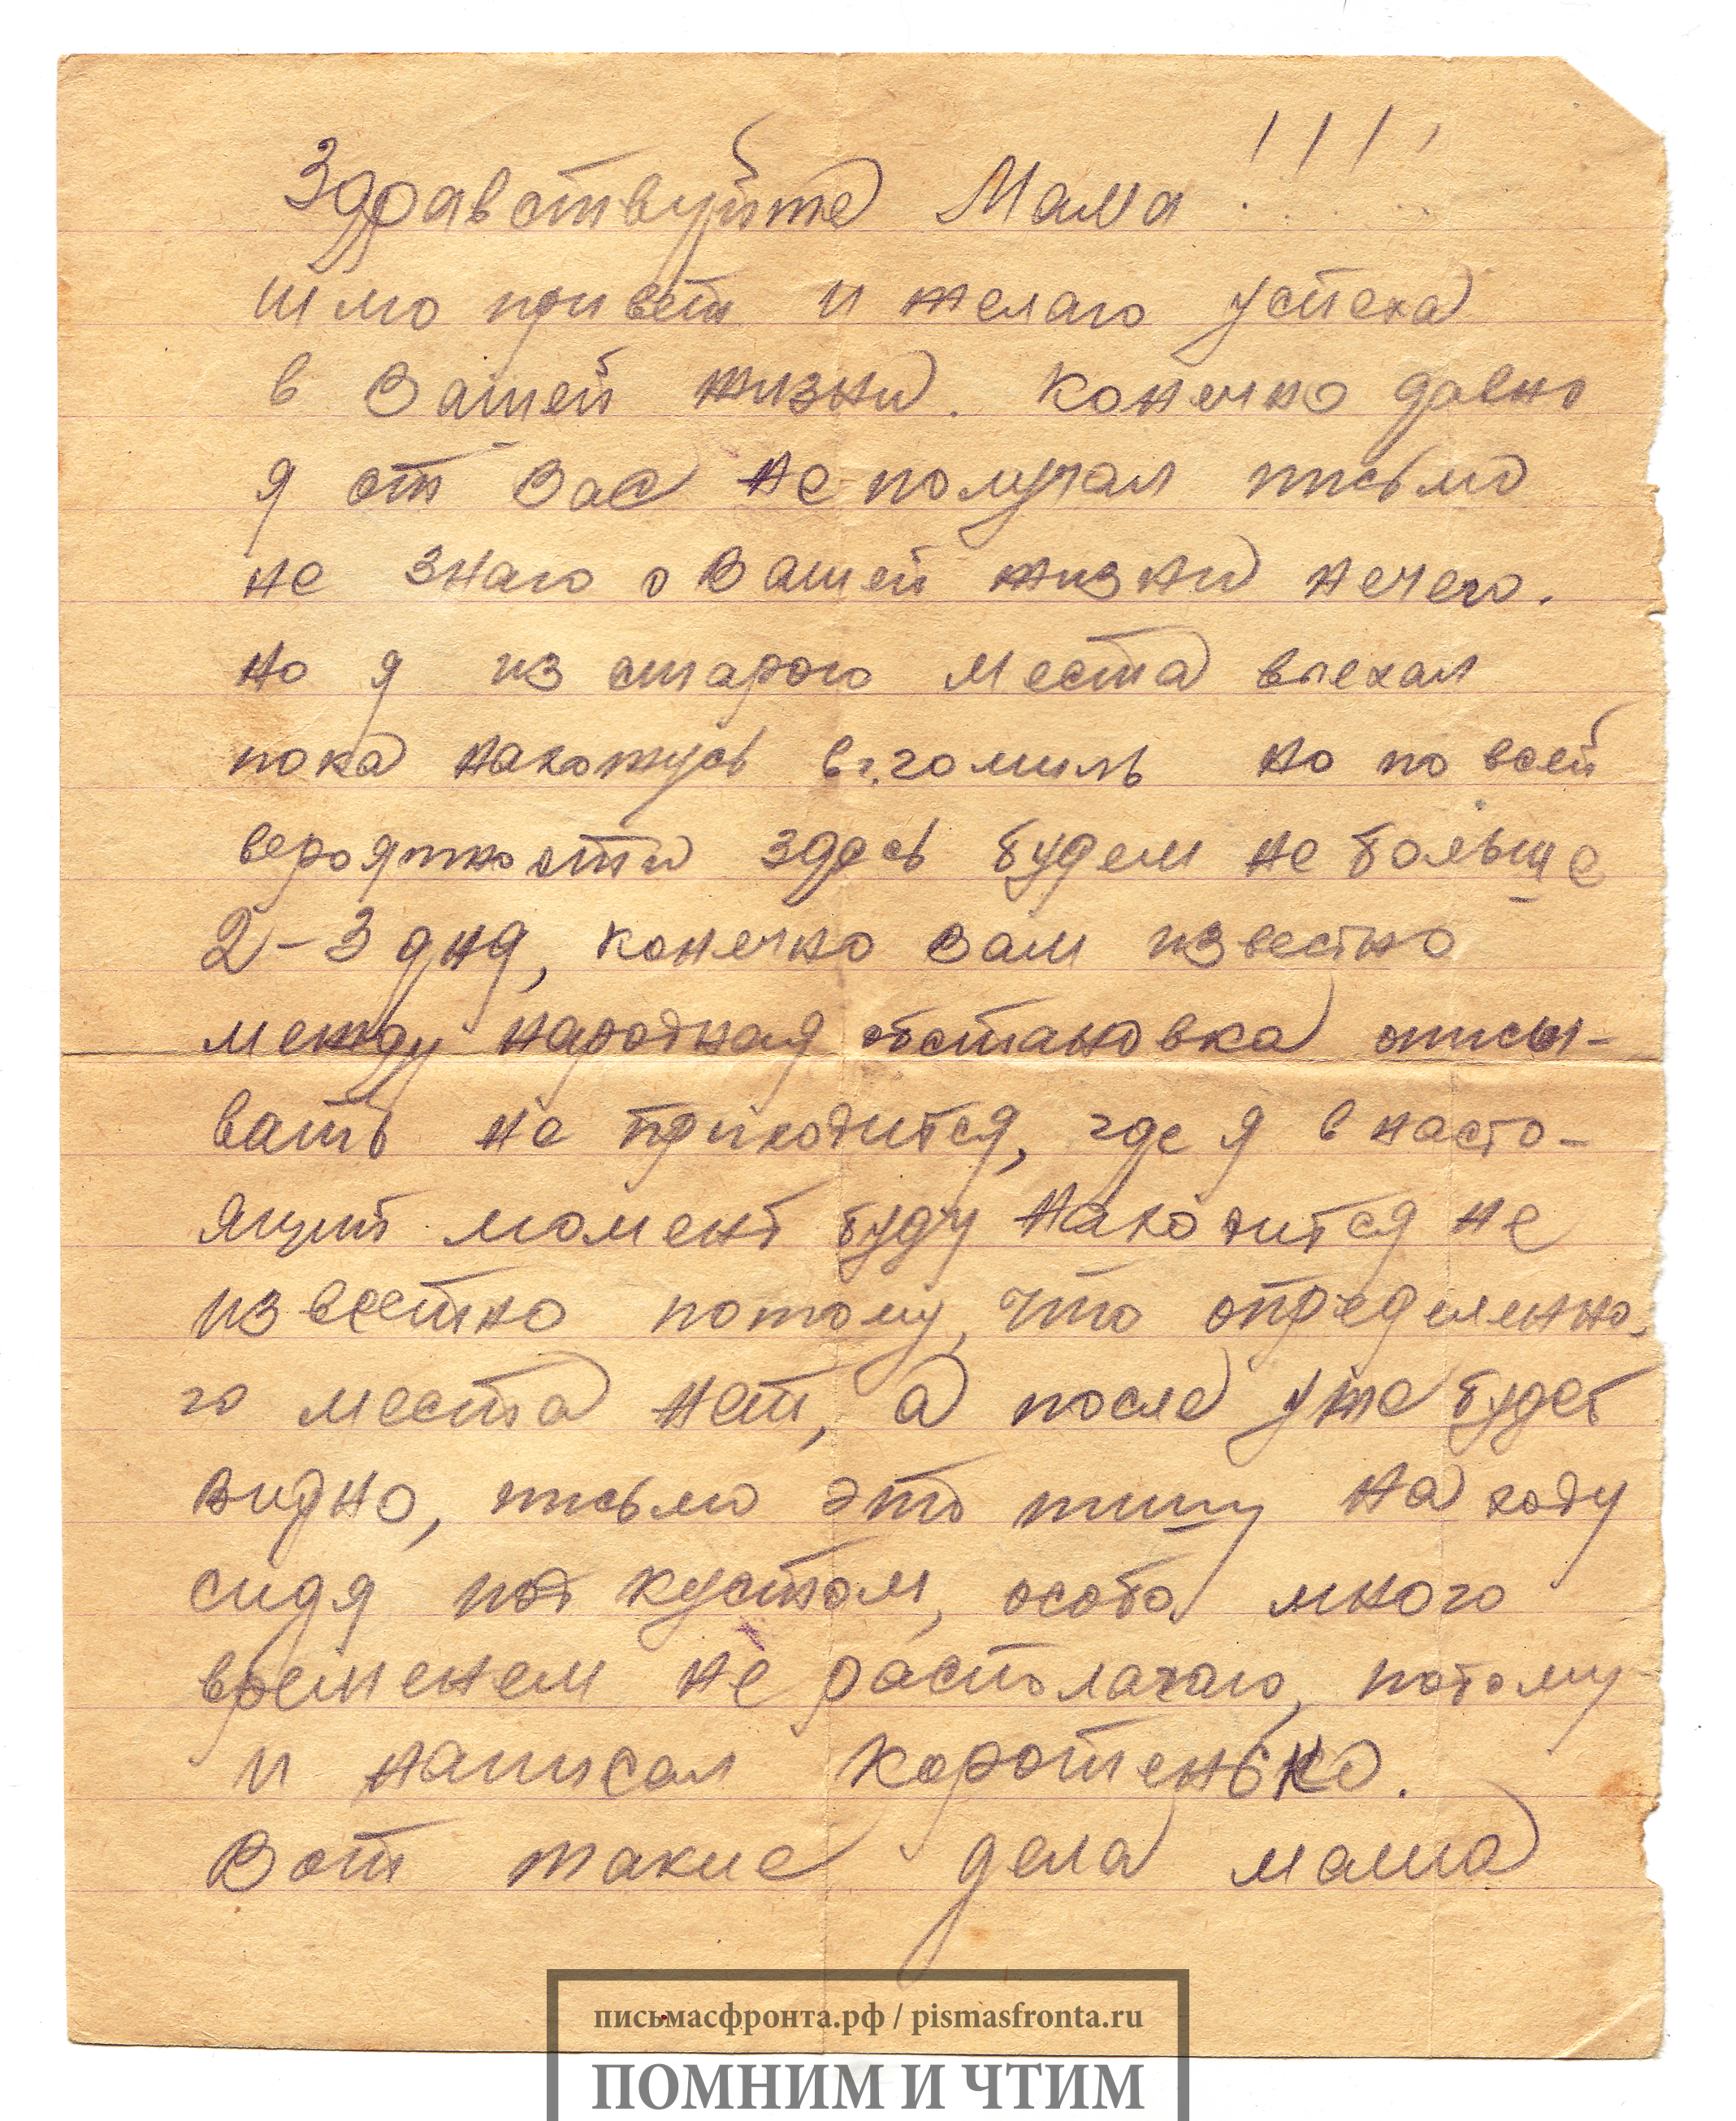 Здравствуйте Мама !!!!
шлю привет и желаю успеха
в Вашей жизни. Конечно давно
я от Вас не получал письмо
не знаю о Вашей жизни нечего.
но я из старого места выехал
пока нахожусь в г. гомиль но по всей
вероятности здесь будем не больше
2-3 дня, конечно Вам известно
между народная обстановка описы-
вать не приходится, где я в насто-
ящий момент буду находится не
известно потому, что определенно-
го места нет, а после уже будет
видно, письмо это пишу на ходу
сидя под кустом, особо много
временем не располагаю, потому
и написал коротенько.
Вот такие дела мама
письмасфронта.рф / pismasfronta.ru
ПОМНИМ И ЧТИМ